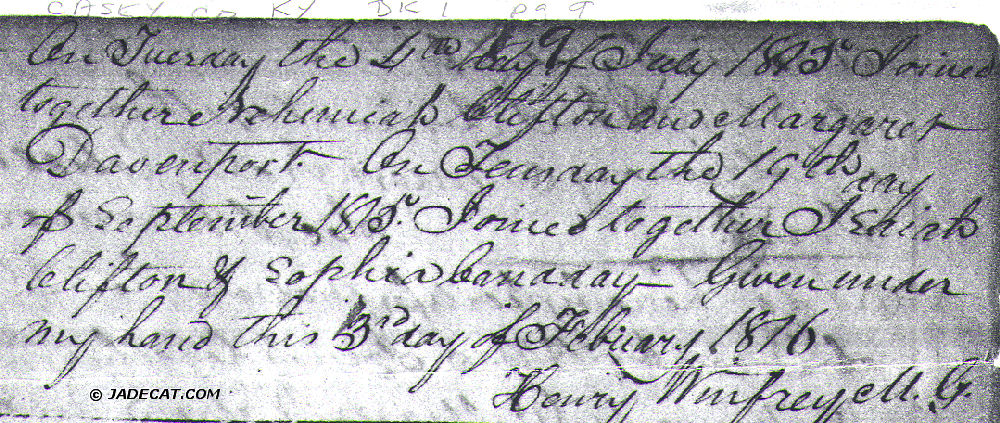 CASKY Co KY BK 1 pg 9
On Tuesday the 4th day of July 1815 Joined
together Nehemiah Clifton and Margaret
Davenport. On Teusday the 19th day
of September 1815 Joined together Isaiah
Clifton & Sophia Canaday Given under
my hand this 3rd day of February 1816
Henry Winfrey M. G.
© JADECAT.COM